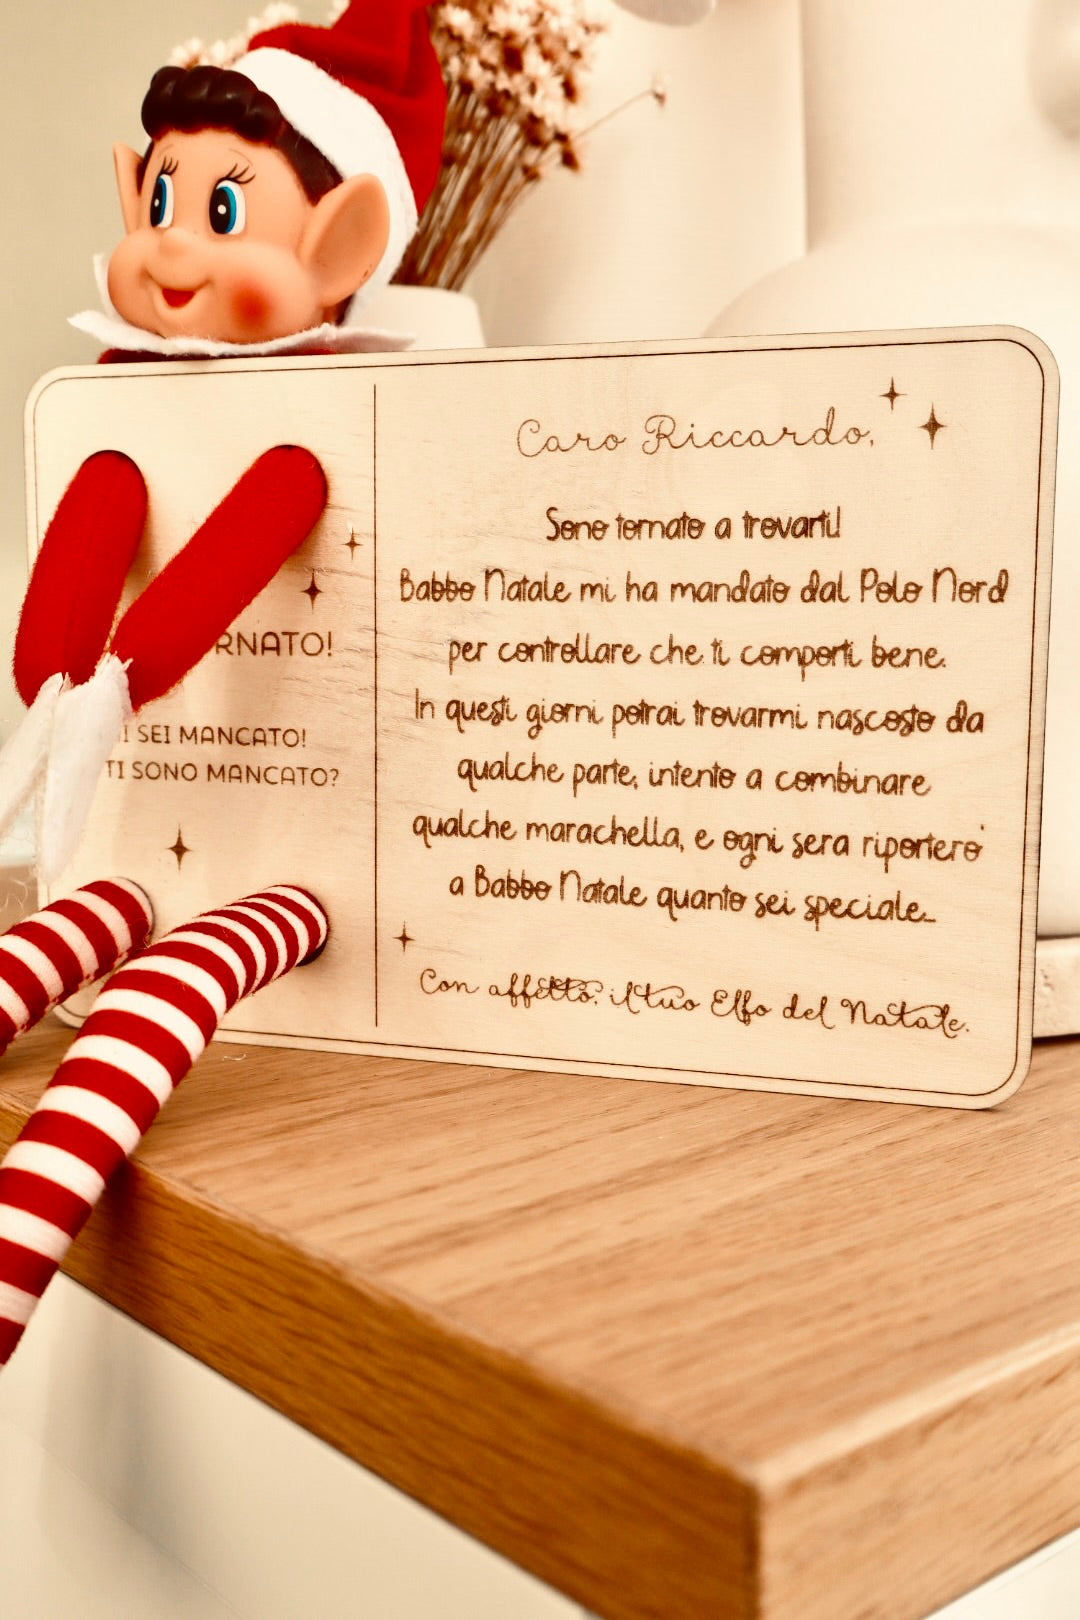 RNATO!
SEI MANCATO!
TI SONO MANCATO?
Caro Riccardo,
Sono tornato a trovarti!
Babbo Natale mi ha mandato dal Polo Nord
per controllare che ti comporti bene.
In questi giorni potrai trovarmi nascosto da
qualche parte, intento a combinare
qualche marachella, e ogni sera riporterò
a Babbo Natale quanto sei speciale...
Con affetto, il tuo Elfo del Natale.